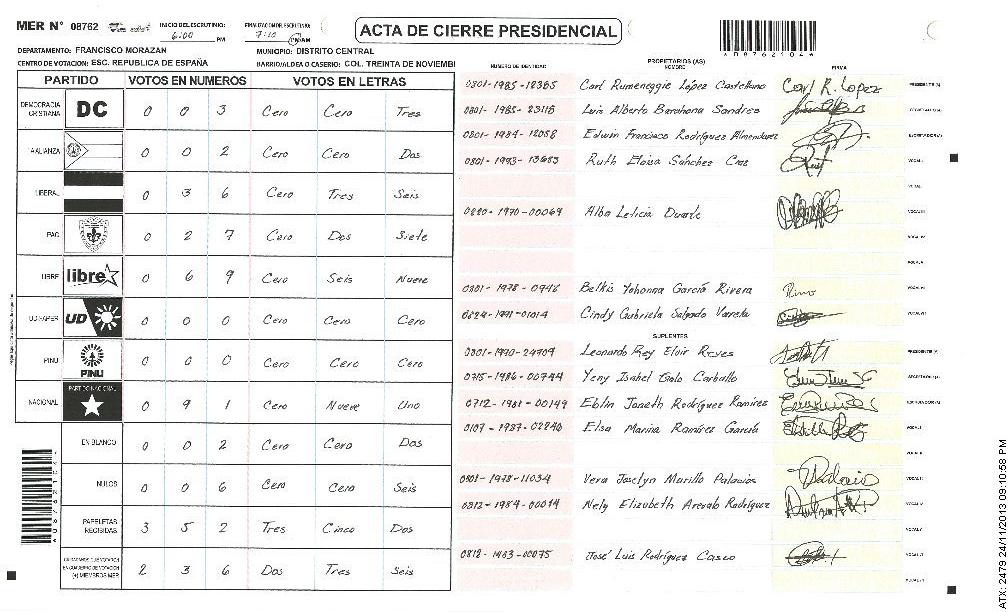 MER N° 08762 INICIO DEL ESCRUTINIO: 6:00 PM FINALIZACION DEL ESCRUTINIO: 7:10 PM
ACTA DE CIERRE PRESIDENCIAL
DEPARTAMENTO: FRANCISCO MORAZAN MUNICIPIO: DISTRITO CENTRAL
CENTRO DE VOTACION: ESC. REPUBLICA DE ESPAÑA BARRIO/ALDEA O CASERIO: COL. TREINTA DE NOVIEMBI
PARTIDO VOTOS EN NUMEROS VOTOS EN LETRAS
DEMOCRACIA CRISTIANA DC 0 0 3 Cero Cero Tres
AALIANZA 0 0 2 Cero Cero Dos
LIBERAL 0 3 6 Cero Tres Seis
PAC 0 2 7 Cero Dos Siete
LIBRE libre 0 6 9 Cero Seis Nueve
UD/FAPER UD 0 0 0 Cero Cero Cero
PINU PINU 0 0 0 Cero Cero Cero
NACIONAL PARTIDO NACIONAL 0 9 1 Cero Nueve Uno
EN BLANCO 0 0 2 Cero Cero Dos
NULOS 0 0 6 Cero Cero Seis
PAPELETAS RECIBIDAS 3 5 2 Tres Cinco Dos
(+) MIEMBROS MER 2 3 6 Dos Tres Seis
NUMERO DE IDENTIDAD PROPIETARIOS (AS) NOMBRE FIRMA
0801-1985-18365 Carl Rumeneggie López Castellano Carl R. Lopez PRESIDENTE (A)
0801-1985-23116 Luis Alberto Barahona Sandres SECRETARIO (A)
0801-1984-12058 Edwin Francisco Rodríguez Almendarez ESCRUTADOR (A)
0801-1993-13683 Ruth Eloisa Sanchez VOCAL I
VOCAL II
0820-1970-00069 Alba Leticia Duarte VOCAL III
VOCAL IV
VOCAL V
0801-1978-0946 Belkis Yohonna García Rivera VOCAL VI
0824-1991-01014 Cindy Gabriela Salgado Varela VOCAL VII
SUPLENTES
0801-1970-24909 Leonardo Rey Elvir Reyes PRESIDENTE (A)
0715-1986-00744 Yeny Isabel Carballo SECRETARIO (A)
0712-1981-00149 Eblin Janeth Rodríguez Ramirez ESCRUTADOR (A)
0107-1987-02240 Elsa Marina Ramírez García VOCAL I
VOCAL II
0801-1978-11034 Vera Joselyn Murillo Palacios VOCAL III
0812-1984-00014 Nely Elizabeth Arevalo Rodríguez VOCAL IV
VOCAL V
0812-1983-00075 José Luis Rodríguez Casco VOCAL VI
VOCAL VII
ATX: 2479 24/11/2013 09:10:58 PM